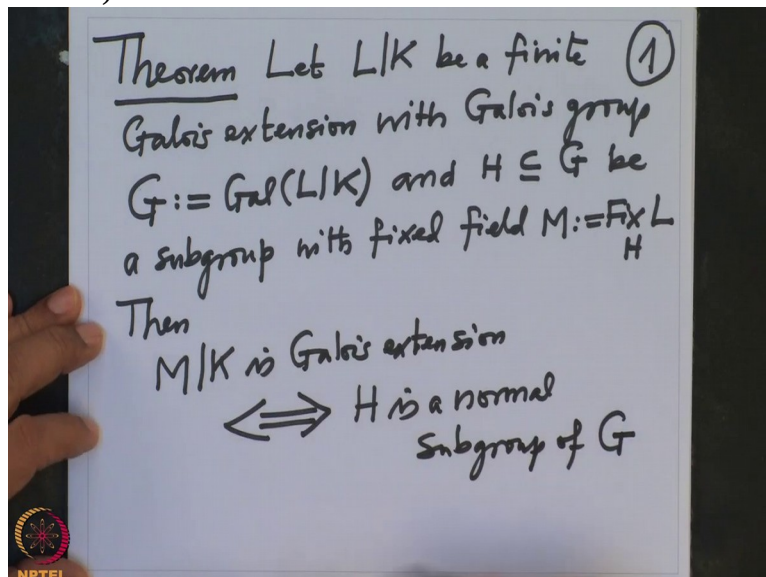 Theorem Let L|K be a finite ①
Galois extension with Galois group
G := Gal(L|K) and H ⊆ G be
a subgroup with fixed field M := Fix_H L
Then
M|K is Galois extension
⟺ H is a normal
subgroup of G
NPTEL